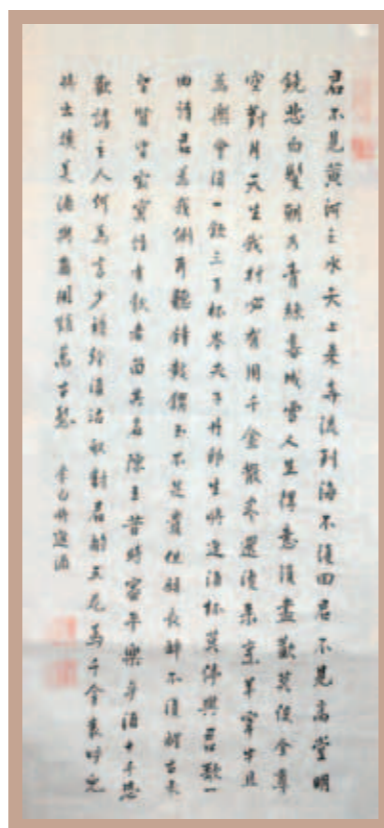 君不見黃河之水天上來奔流到海不復回君不見高堂明
鏡悲白髮朝如青絲暮成雪人生得意須盡歡莫使金尊
空對月天生我材必有用千金散盡還復來烹羊宰牛且
為樂會須一飲三百杯岑夫子丹邱生將進酒杯莫停與君歌一
曲請君為我側耳聽鐘鼓饌玉不足貴但願長醉不復醒古來
聖賢皆寂寞惟有飲者留其名陳王昔時宴平樂斗酒十千恣
歡謔主人何為言少錢徑須沽取對君酌五花馬千金裘呼兒
將出換美酒與爾同銷萬古愁 李白將進酒